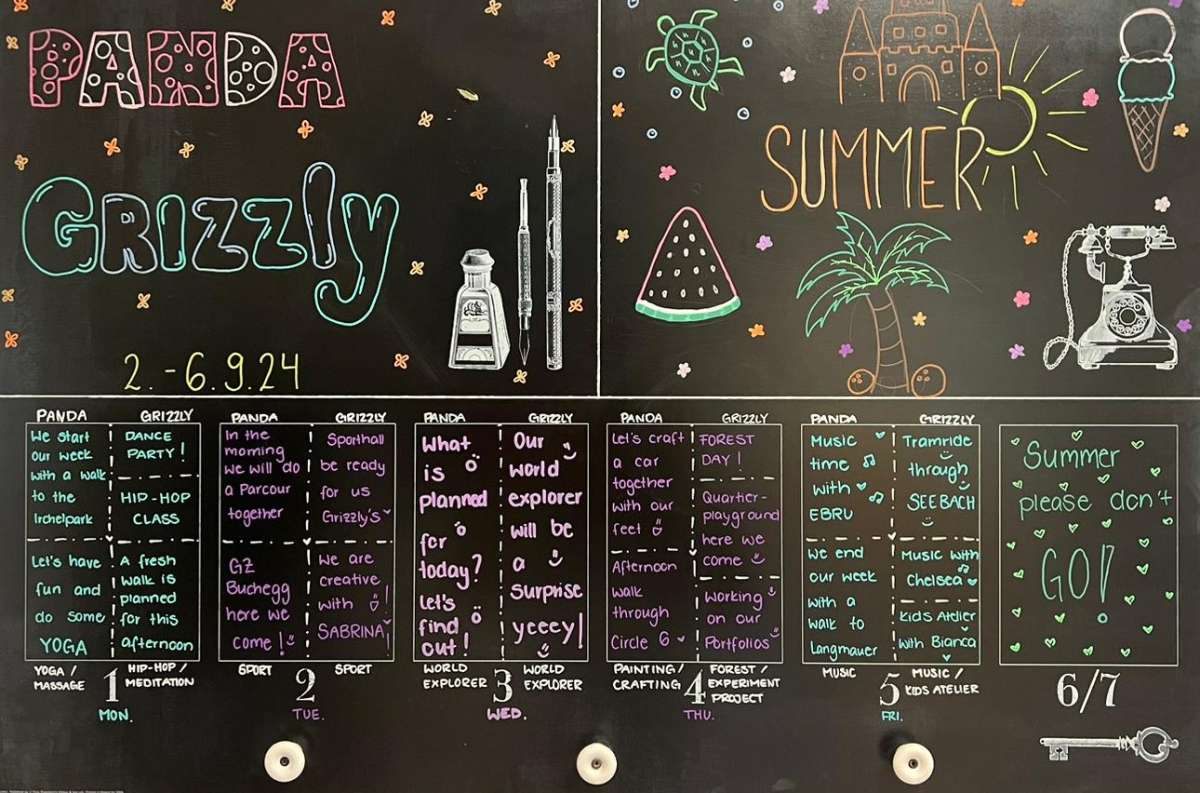 PANDA
GRIZZLY
2.-6.9.24
SUMMER
PANDA
GRIZZLY
We start
our week
with a walk
to the
Irchelpark
Let's have
fun and
do some
YOGA
DANCE
PARTY!
HIP-HOP
CLASS
A fresh
walk is
planned
for this
afternoon
YOGA /
MASSAGE
1
HIP-HOP /
MEDITATION
MON.
PANDA
GRIZZLY
In the
morning
we will do
a Parcour
together
GZ
Buchegg
here we
come!
Sporthall
be ready
for us
Grizzly's
We are
creative
with !
SABRINA
SPORT
2
SPORT
TUE.
PANDA
GRIZZLY
What
is
planned
for
today?
Let's
find
out!
Our
world
explorer
will be
a
surprise
yeeey!
WORLD
EXPLORER
3
WORLD
EXPLORER
WED.
PANDA
GRIZZLY
Let's craft
a car
together
with our
feet
Afternoon
walk
through
Circle 6
FOREST
DAY!
Quartier-
playground
here we
come
Working
on our
Portfolios
PAINTING /
CRAFTING
4
FOREST /
EXPERIMENT
PROJECT
THU.
PANDA
GRIZZLY
Music
time
with
EBRU
We end
our week
with a
walk to
Langmauer
Tramride
through
SEEBACH
Music with
Chelsea
Kids Atelier
with Bianca
MUSIC
5
MUSIC /
KIDS ATELIER
FRI.
Summer
please don't
GO!
6/7